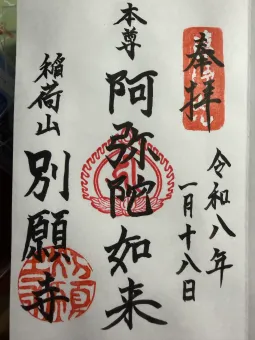 奉拝
令和八年
一月十八日
本尊
阿弥陀如来
稲荷山
別願寺